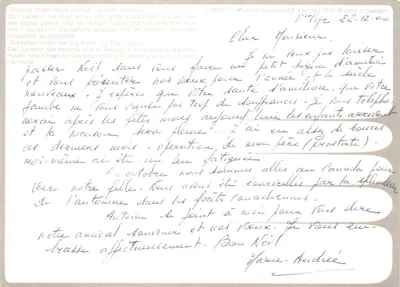 22-12-00
Cher Monsieur,
Je ne veux pas laisser
passer Noël sans vous faire un petit signe d'amitié
et vous présenter nos vœux pour l'année et le siècle
nouveaux - J'espère que votre santé s'améliore, que votre
jambe ne vous cause pas trop de souffrances - Je vous télépho-
nerai après les fêtes mais aujourd'hui les enfants arrivent
et la maison sera pleine - J'ai eu assez de soucis
ces derniers mois - opération de mon père (prostate) -
moi-même ai été un peu fatiguée -
En octobre nous sommes allés au Canada pour
voir notre fille. Nous avons été émerveillés par la splendeur
de l'automne dans les forêts Canadiennes.
Antoine se joint à moi pour vous dire
notre amical souvenir et nos vœux. Je vous em-
brasse affectueusement - Bon Noël
Marie-Andrée